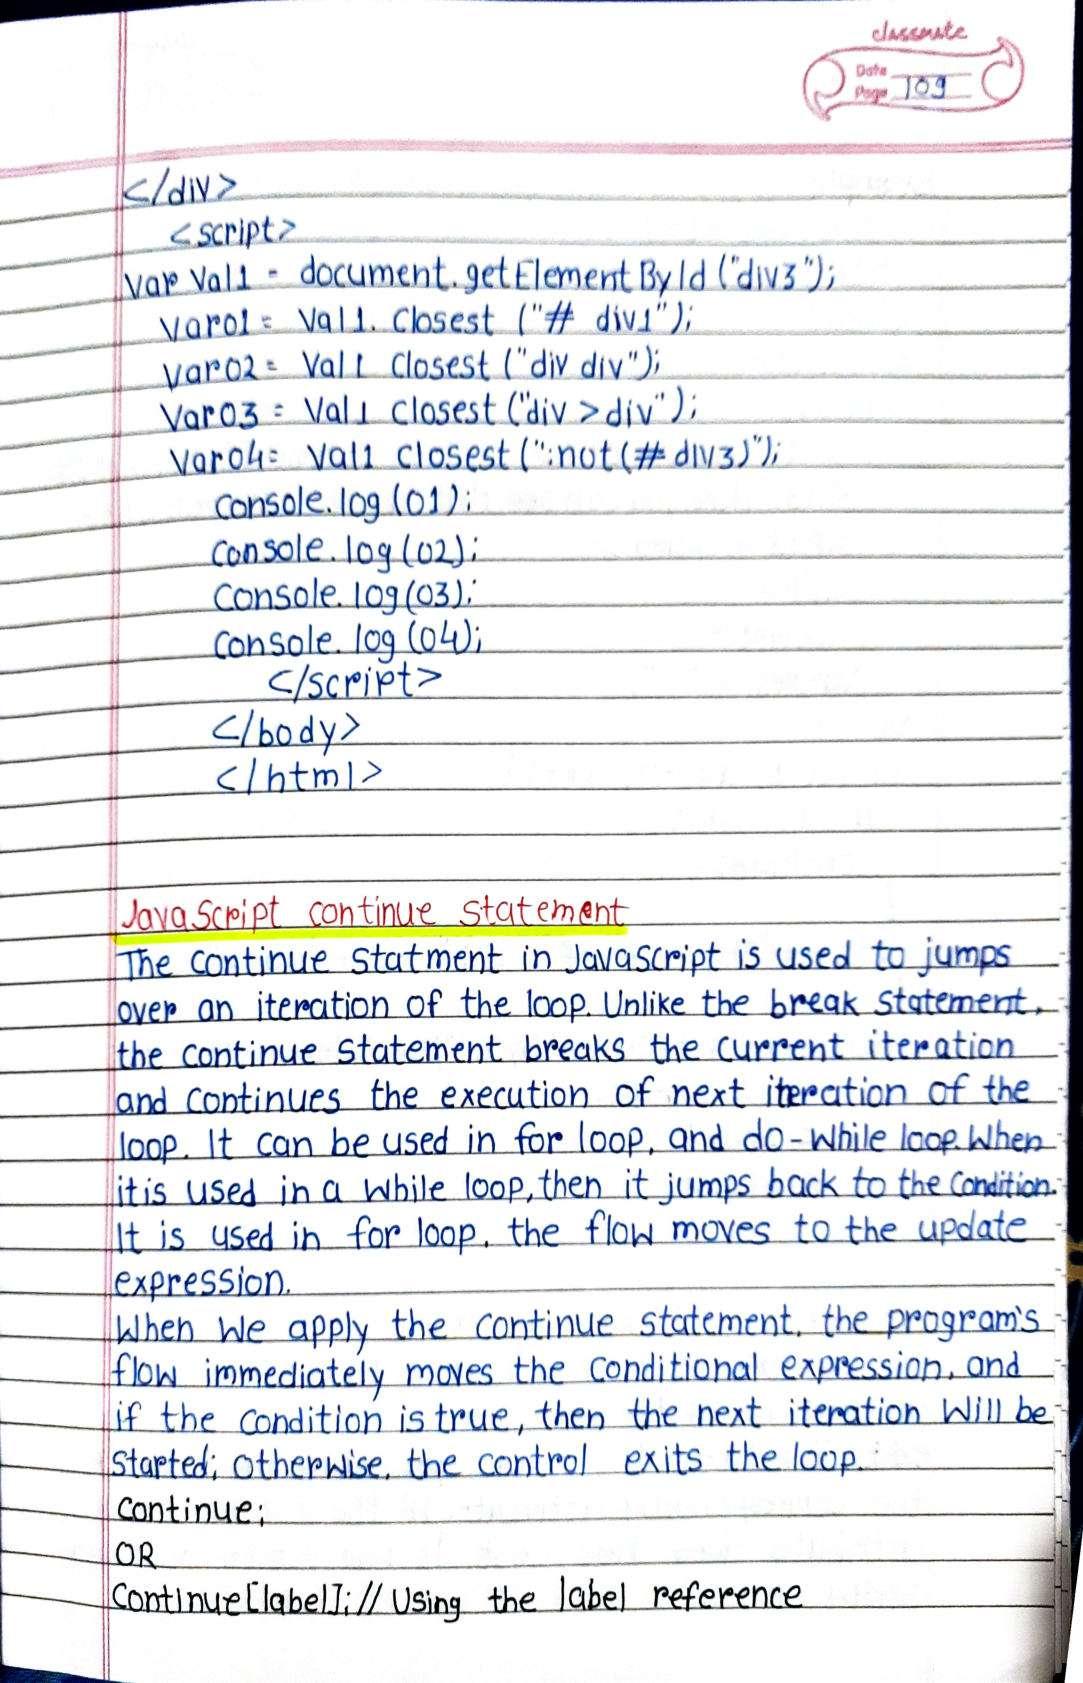 classmate
Date
Page 109
</div>
<script>
Var Val1 = document.getElementById ("div3");
Var01 = Val1. Closest ("# div1");
Var02 = Val1 Closest ("div div");
Var03 = Val1 Closest ("div > div");
Var04 = Val1 Closest (":not (# div3)");
Console.log (01);
Console.log (02);
Console.log (03);
Console.log (04);
</script>
</body>
</html>
JavaScript continue statement
The continue statment in JavaScript is used to jumps
over an iteration of the loop. Unlike the break statement,
the continue statement breaks the current iteration
and continues the execution of next iteration of the
loop. It can be used in for loop, and do-while loop. When
itis used in a while loop, then it jumps back to the condition.
It is used in for loop, the flow moves to the update
expression.
When we apply the continue statement, the program's
flow immediately moves the conditional expression, and
if the condition is true, then the next iteration will be
started; otherwise, the control exits the loop.
Continue;
OR
Continue[label]; // Using the label reference